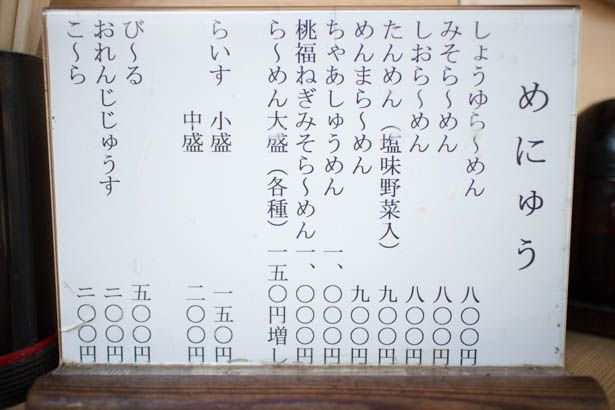 めにゅう
しょうゆら～めん 八〇〇円
みそら～めん 八〇〇円
しおら～めん 八〇〇円
たんめん（塩味野菜入） 九〇〇円
めんまら～めん 九〇〇円
ちゃあしゅうめん 一、〇〇〇円
桃福ねぎみそら～めん 一、〇〇〇円
ら～めん大盛（各種）一五〇円増し
らいす 小盛 一五〇円
中盛 二〇〇円
び～る 五〇〇円
おれんじじゅうす 二〇〇円
こ～ら 二〇〇円